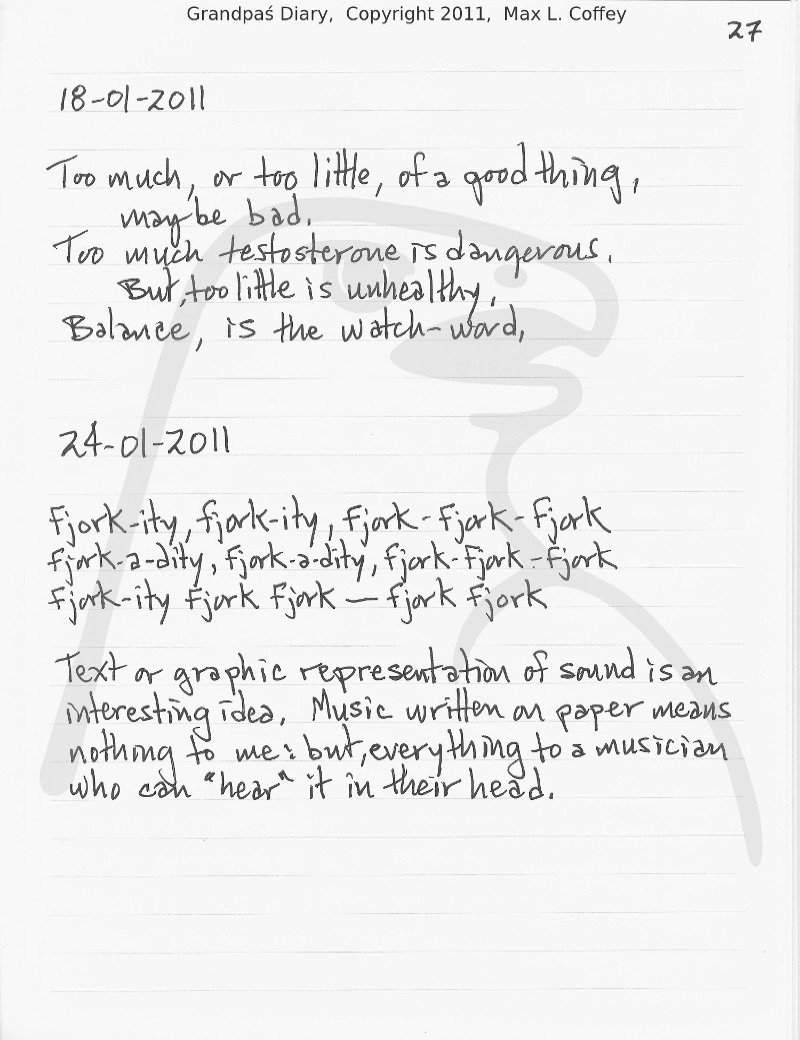 Grandpaś Diary, Copyright 2011, Max L. Coffey
27
18-01-2011
Too much, or too little, of a good thing,
may be bad.
Too much testosterone is dangerous.
But, too little is unhealthy.
Balance, is the watch-word,
24-01-2011
Fjork-ity, fjork-ity, fjork-fjork-fjork
fjork-a-dity, fjork-a-dity, fjork-fjork-fjork
fjork-ity fjork fjork — fjork fjork
Text or graphic representation of sound is an
interesting idea. Music written on paper means
nothing to me: but, everything to a musician
who can "hear" it in their head.